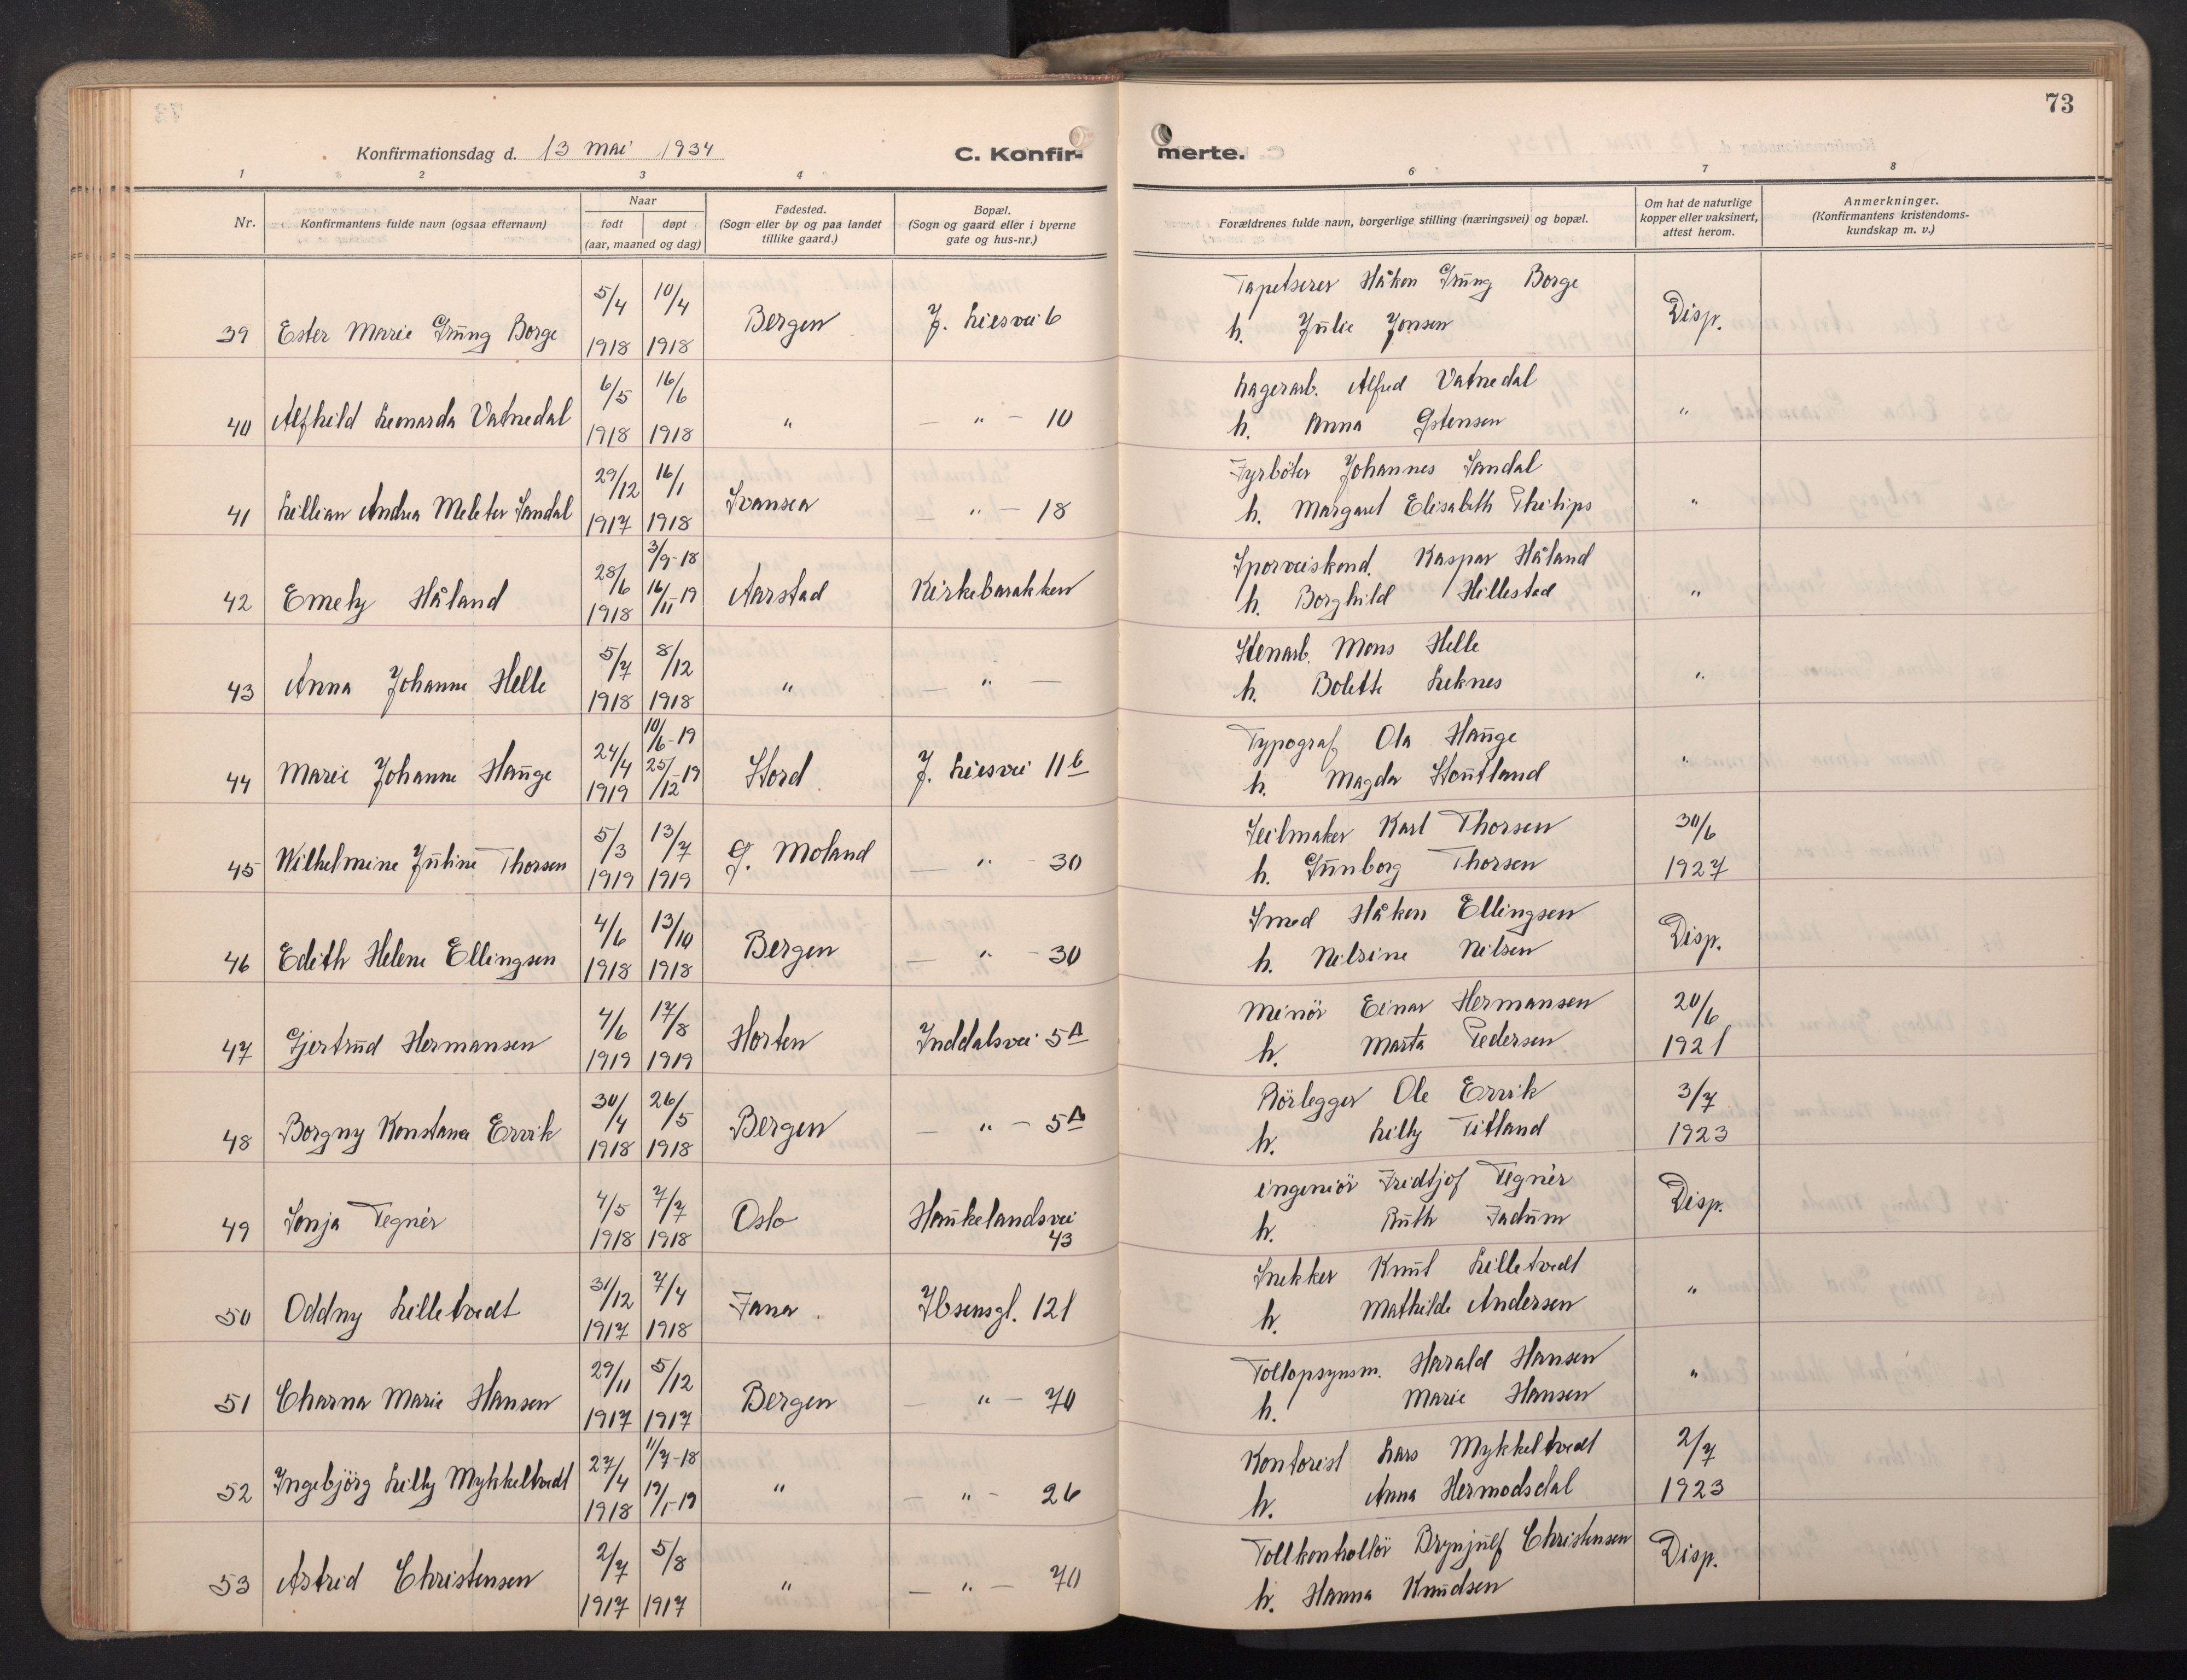 73
Konfirmationsdag d. 13 mai 1934
C. Konfir-
merte.
1 2 3 4 6 7 8
Nr.
Konfirmantens fulde navn (ogsaa efternavn)
Naar
født døpt
(aar, maaned og dag)
Fødested.
(Sogn eller by og paa landet
tillike gaard.)
Bopæl.
(Sogn og gaard eller i byerne
gate og hus-nr.)
Forældrenes fulde navn, borgerlige stilling (næringsvei) og bopæl.
Om hat de naturlige
kopper eller vaksinert,
attest herom.
Anmerkninger.
(Konfirmantens kristendoms-
kundskap m. v.)
5/4 10/4
39 Ester Marie Grung Borge Bergen J. Liesvei 6
1918 1918
Tapetserer Håkon Grung Borge
h. Julie Jonsen
Disp.
6/5 16/6
40 Alfhild Leonarda Vatnedal " — " — 10
1918 1918
Lagerarb. Alfred Vatnedal
h. Anna Gstensen
"
29/12 16/1
41 Lillian Andrea Meleter Sandal Svansea — " — 18
1917 1918
Fyrböter Johannes Sandal
h. Margaret Elisabeth Philips
"
28/6 3/9-18
42 Emely Håland 16/11-19 Aarstad Kirkebarakken
1918
Sporveiskond. Kaspar Håland
h. Borghild Hillestad
"
5/7 8/12
43 Anna Johanne Helle " — " —
1918 1918
Stenarb. Mons Helle
h. Bolette Leknes
"
24/4 10/6-19
44 Marie Johanne Hauge 25/12-19 Stord J. Liesvei 11 b
1919
Typograf Ola Hauge
h. Magda Stoutland
"
5/3 13/7
45 Wilhelmine Juline Thorsen G. Moland — " - 30
1919 1919
Seilmaker Karl Thorsen
h. Gunborg Thorsen
30/6
1927
4/6 13/10
46 Edith Helene Ellingsen Bergen — " - 30
1918 1918
Smed Håkon Ellingsen
h. Nilsine Nilsen
Disp.
4/6 17/8
47 Gjertrud Hermansen Horten Inddalsvei 5 A
1919 1919
Minör Einar Hermansen
h. Marta Pedersen
20/6
1921
30/4 26/5
48 Borgny Konstana Ervik Bergen — " — 5 A
1918 1918
Rörlegger Ole Ervik
h. Lilly Titland
3/7
1923
4/5 7/7
49 Sonja Tegnér Oslo Haukelandsvei
43
1918 1918
ingeniör Fridtjof Tegnér
h. Ruth Fadum
Disp.
31/12 7/4
50 Oddny Lilletvedt Fana Ibsensgt. 121
1917 1918
Snekker Knut Lilletvedt
h. Mathilde Andersen
"
29/11 5/12
51 Charna Marie Hansen Bergen — " — 70
1917 1917
Tollopsynsm. Harald Hansen
h. Marie Hansen
"
27/4 11/7-18
52 Ingebjörg Lilly Mykkeltvedt 19/1-19 " — " - 26
1918
Kontorist Lars Mykkeltvedt
h. Anna Hermodsdal
2/7
1923
2/7 5/8
53 Astrid Christensen " — " — 70
1917 1917
Tollkontrollör Brynjulf Christensen
h. Hanna Knudsen
Disp.